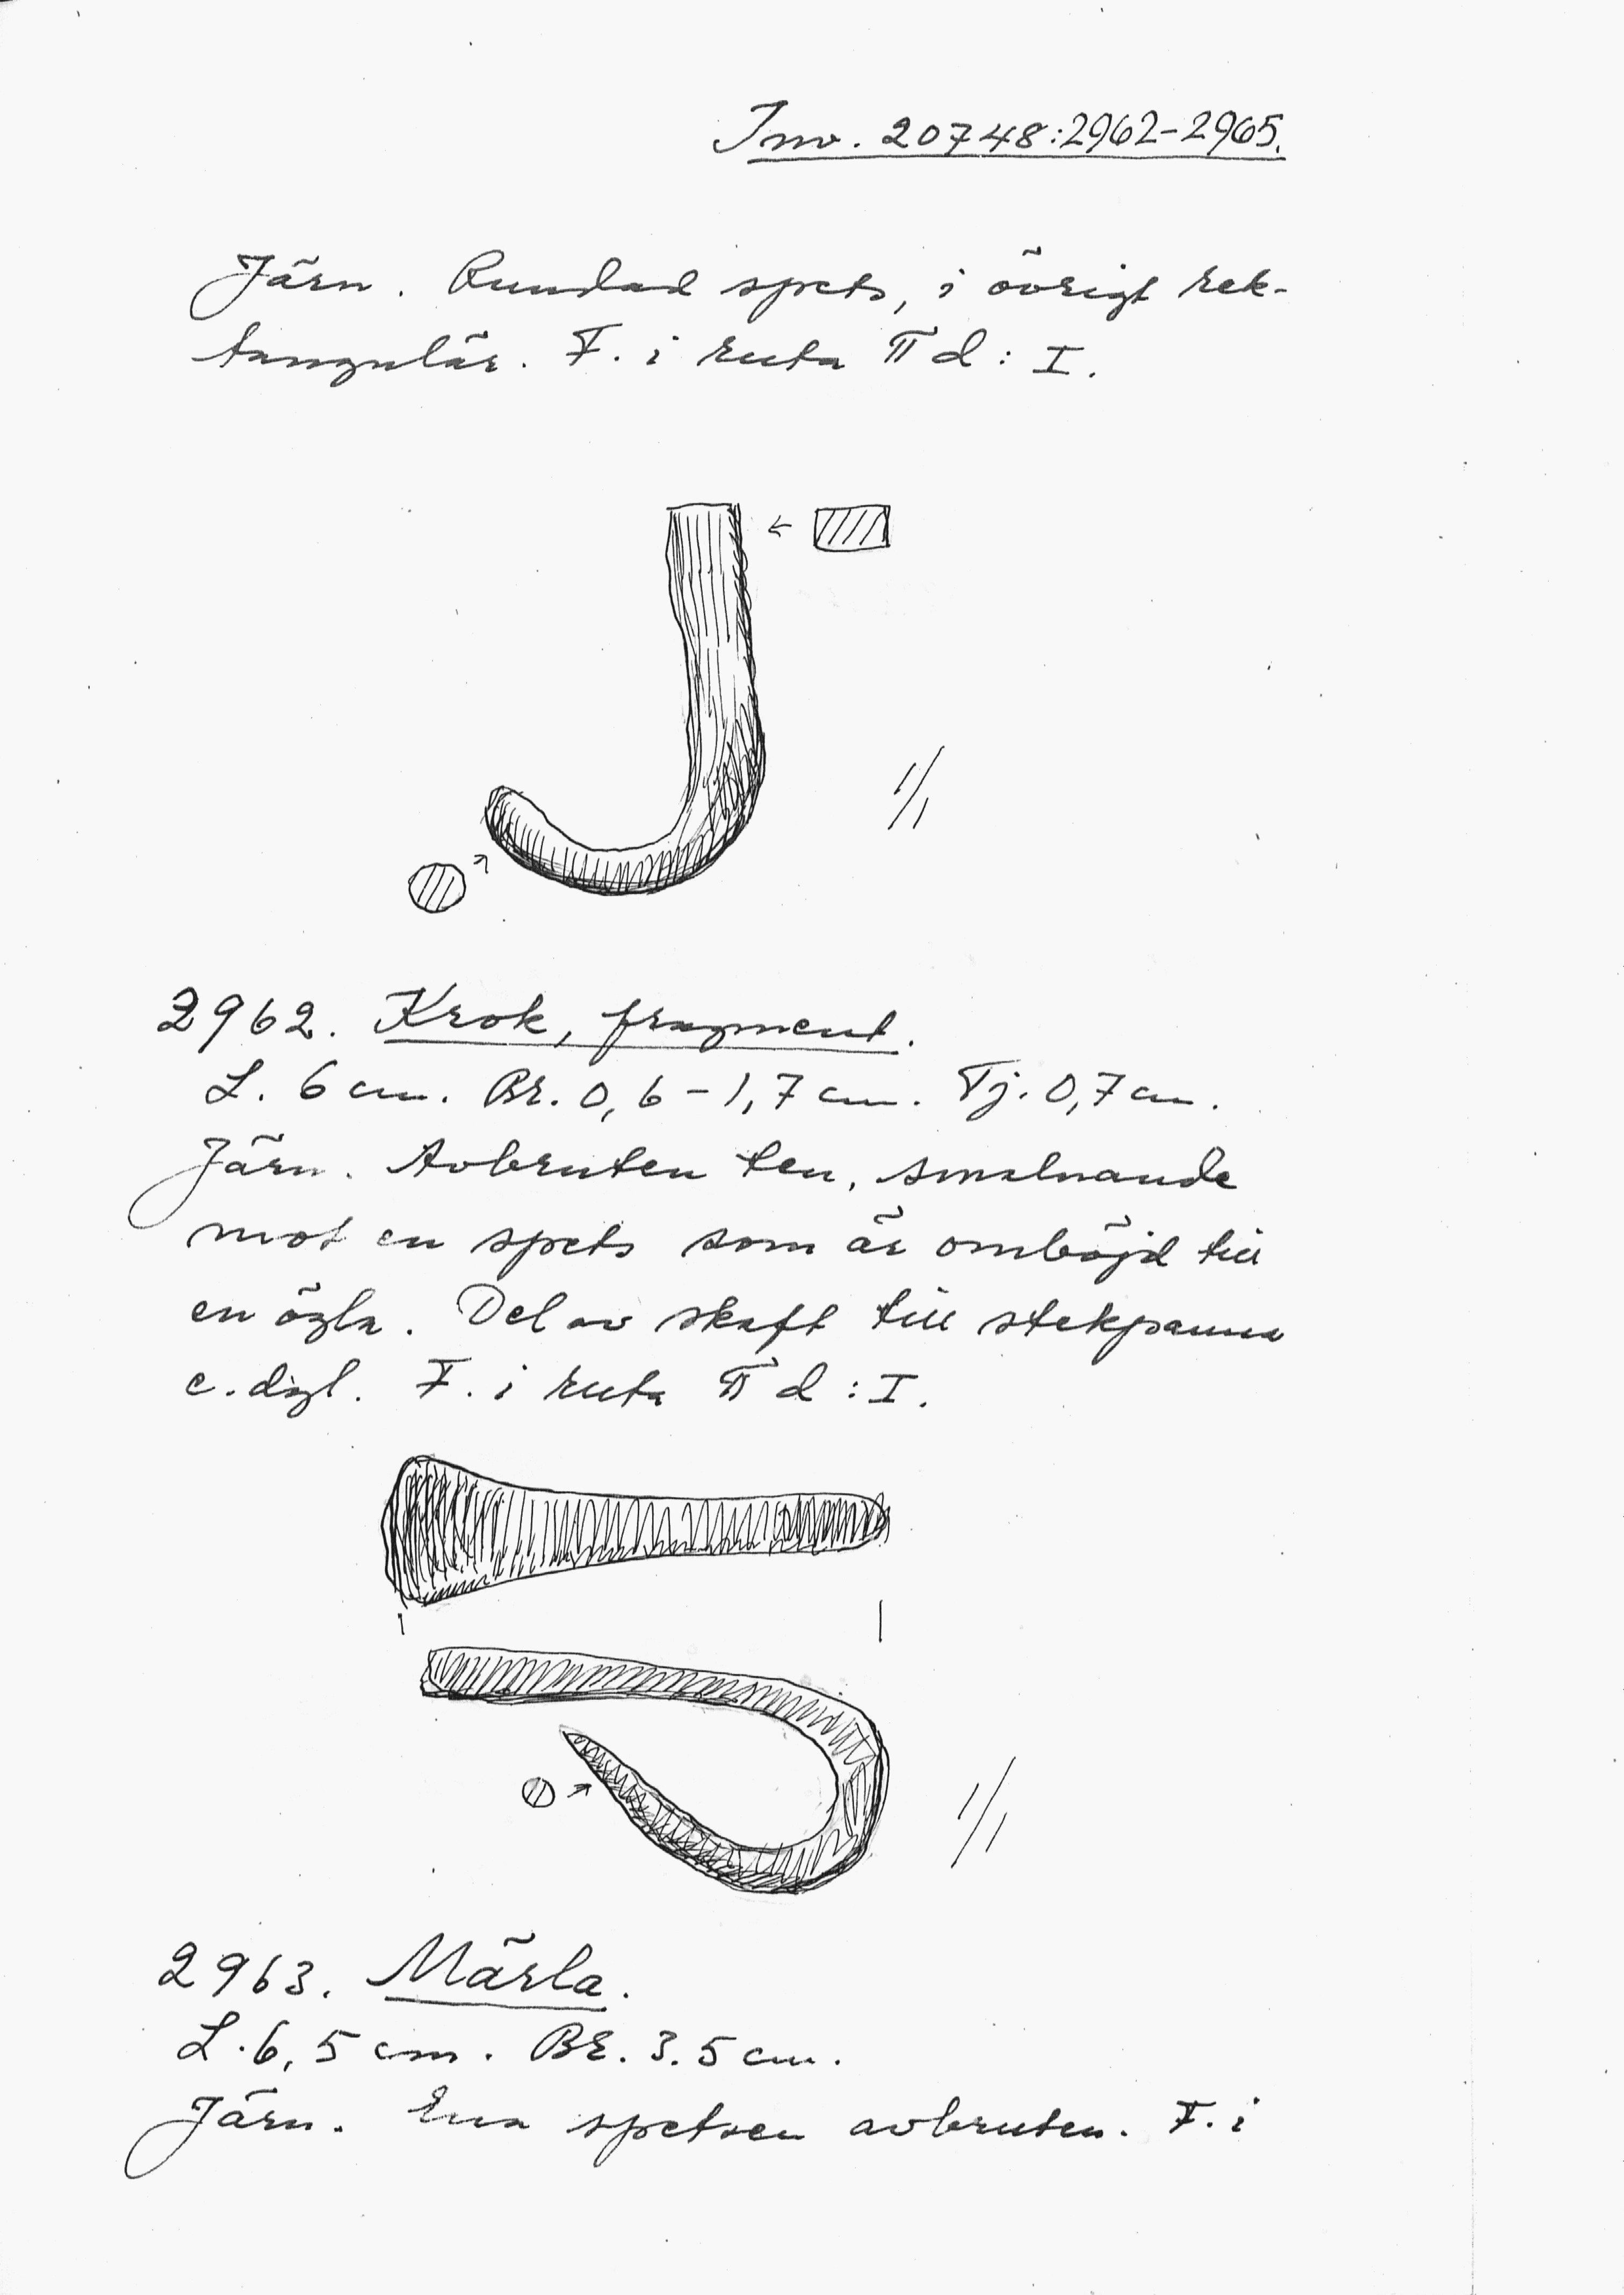 Inv. 20748:2962-2965.
Järn. Rundad spets, i övrigt rek-
tangulär. F. i ruta II d: I.
1/1
2962. Krok, fragment.
L. 6 cm. Br. 0,6-1,7 cm. Tj. 0,7 cm.
Järn. Avbruten ten, smalnande
mot en spets som är ombøjd till
en ögla. Del av skaft till stekpanna
e. dyl. F. i ruta II d: I.
1/1
2963. Märla.
L. 6,5 cm. Br. 3.5 cm.
Järn. Ena spetsen avbruten. F. i